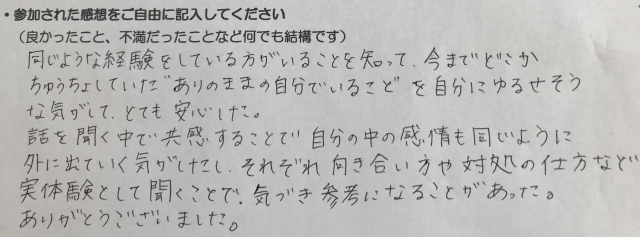 ・参加された感想をご自由に記入してください
（良かったこと、不満だったことなど何でも結構です）
同じような経験をしている方がいることを知って、今までどこか
ちゅうちょしていた"ありのままの自分でいること"を自分にゆるせそう
な気がして、とても安心した。
話を聞く中で共感することで自分の中の感情も同じように
外に出ていく気がしたし、それぞれ向き合い方や対処の仕方など
実体験として聞くことで、気づき参考になることがあった。
ありがとうございました。